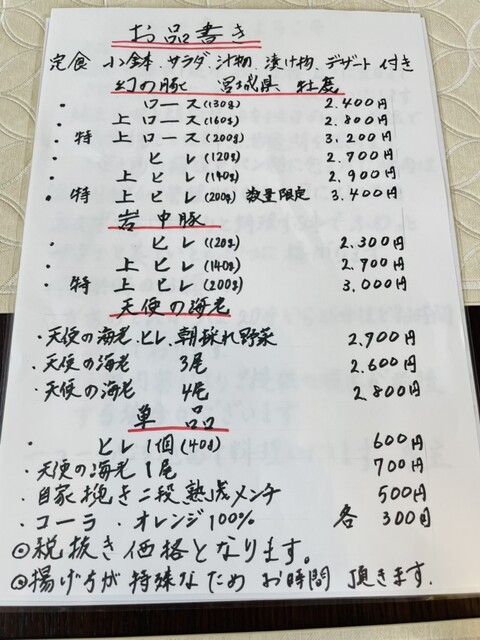 お品書き
定食 小鉢、サラダ、汁物、漬け物、デザート付き
幻の豚 宮城県 牡鹿
・ ロース(130g) 2.400円
・ 上ロース(160g) 2.800円
・特 上ロース(200g) 3.200円
・ ヒレ(120g) 2.700円
・ 上ヒレ(140g) 2.900円
・特 上ヒレ(200g)数量限定 3.400円
岩中豚
・ ヒレ(120g) 2.300円
・ 上ヒレ(140g) 2.700円
・特 上ヒレ(200g) 3.000円
天使の海老
・天使の海老、ヒレ、朝採れ野菜 2.900円
・天使の海老 3尾 2.600円
・天使の海老 4尾 2.800円
単品
・ ヒレ1個(40g) 600円
・天使の海老1尾 700円
・自家挽き二段熟成メンチ 500円
・コーラ ・オレンジ100% 各 300円
◎税抜き価格となります。
◎揚げ方が特殊なためお時間頂きます.